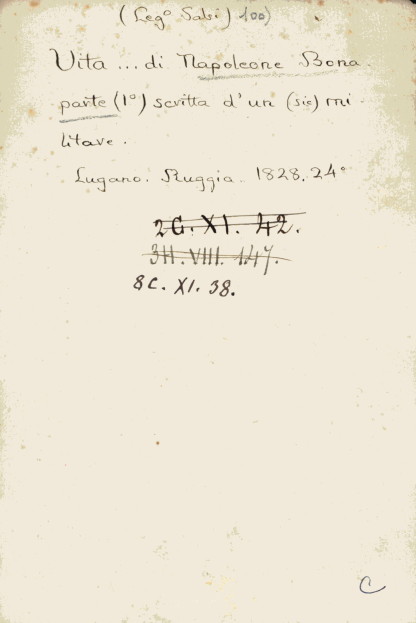 (Leg° Sabi) 100)
Vita ... di Napoleone Bona-
parte (1°) scritta d'un (sic) mi-
litare.
Lugano. Ruggia. 1828. 24°
2C. XI. 42.
3H. VIII. 147.
8C. XI. 38.
C